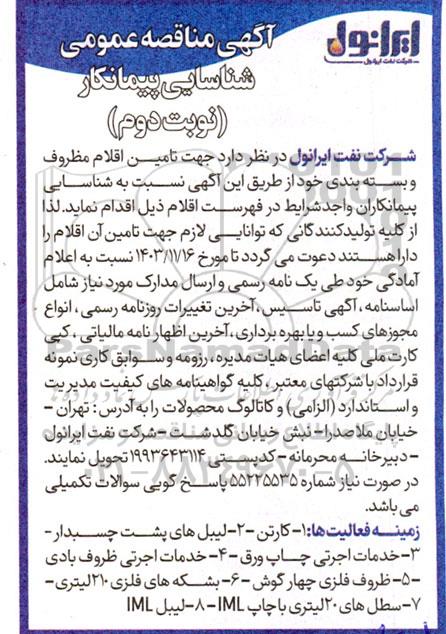 ایرانول
شرکت نفت ایرانول
آگهی مناقصه عمومی
شناسایی پیمانکار
(نوبت دوم)
شرکت نفت ایرانول در نظر دارد جهت تامین اقلام مظروف
و بسته بندی خود از طریق این آگهی نسبت به شناسایی
پیمانکاران واجد شرایط در فهرست اقلام ذیل اقدام نماید. لذا
از کلیه تولیدکنندگانی که توانایی لازم جهت تامین آن اقلام را
دارا هستند دعوت می گردد تا مورخ ۱۴۰۳/۱۱/۱۶ نسبت به اعلام
آمادگی خود طی یک نامه رسمی و ارسال مدارک مورد نیاز شامل
اساسنامه ، آگهی تاسیس ، آخرین تغییرات روزنامه رسمی ، انواع
مجوزهای کسب و یا بهره برداری ، آخرین اظهار نامه مالیاتی ، کپی
کارت ملی کلیه اعضای هیات مدیره ، رزومه و سوابق کاری نمونه
قرارداد با شرکتهای معتبر ، کلیه گواهینامه های کیفیت مدیریت
و استاندارد (الزامی) و کاتالوگ محصولات را به آدرس : تهران -
خیابان ملاصدرا - نبش خیابان گلدشت - شرکت نفت ایرانول
- دبیرخانه محرمانه - کدپستی ۱۹۹۳۶۴۳۱۱۴ تحویل نمایند.
در صورت نیاز شماره ۵۵۲۲۵۵۳۵ پاسخ گویی سوالات تکمیلی
می باشد.
زمینه فعالیت ها: ۱- کارتن - ۲- لیبل های پشت چسبدار -
۳- خدمات اجرتی چاپ ورق - ۴- خدمات اجرتی ظروف بادی
- ۵- ظروف فلزی چهار گوش - ۶- بشکه های فلزی ۲۱۰ لیتری -
۷- سطل های ۲۰ لیتری با چاپ IML - ۸- لیبل IML
ParsNamadData
۰۲۱-۸۸۳۴۹۶۷۰-۵